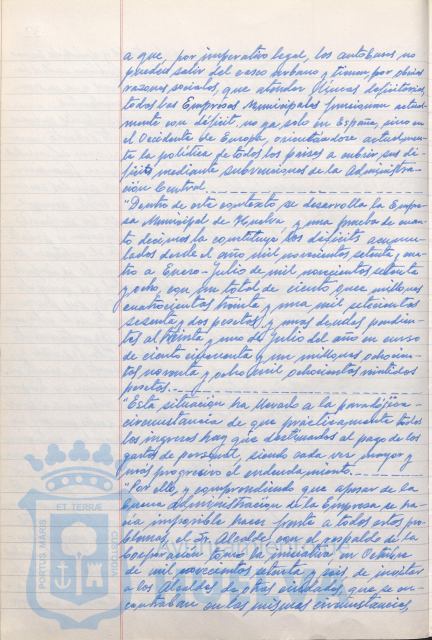 a que, por imperativo legal, los autobuses no
pueden salir del casco urbano y tienen, por obvias
razones sociales, que atender líneas deficitarias,
todas las Empresas Municipales funcionan actual-
mente con déficit, no ya solo en España, sino en
el Occidente de Europa, orientándose actualmen-
te la política de todos los países a cubrir sus dé-
ficits mediante subvenciones de la Administra-
ción Central.
"Dentro de este contexto se desarrolla la Empre-
sa Municipal de Huelva, y una prueba de cuan-
to decimos la constituye los déficits acumu-
lados desde el año mil novecientos setenta y cua-
tro a Enero-Julio de mil novecientos setenta
y ocho, con un total de ciento que millones
cuatrocientas treinta y una mil setecientas
sesenta y dos pesetas, y unas deudas pendien-
tes al treinta y uno de Julio del año en curso
de ciento cincuenta y un millones ochocien-
tas noventa y ocho mil ochocientas veintidos
pesetas.
"Esta situación ha llevado a la paradójica
circunstancia de que prácticamente todos
los ingresos hay que destinarlos al pago de los
gastos de personal, siendo cada vez mayor y
más progresivo el endeudamiento.
"Por ello, y comprendiendo que apesar de la
buena administración de la Empresa se ha-
cía imposible hacer frente a todos estos pro-
blemas, el Sr. Alcalde, con el respaldo de la
Corporación tomó la iniciativa en Octubre
de mil novecientos setenta y seis de invitar
a los Alcaldes de otras ciudades que se en-
contraban en las mismas circunstancias,
PORTUS MARIS
ET TERRAE
CUSTODIA